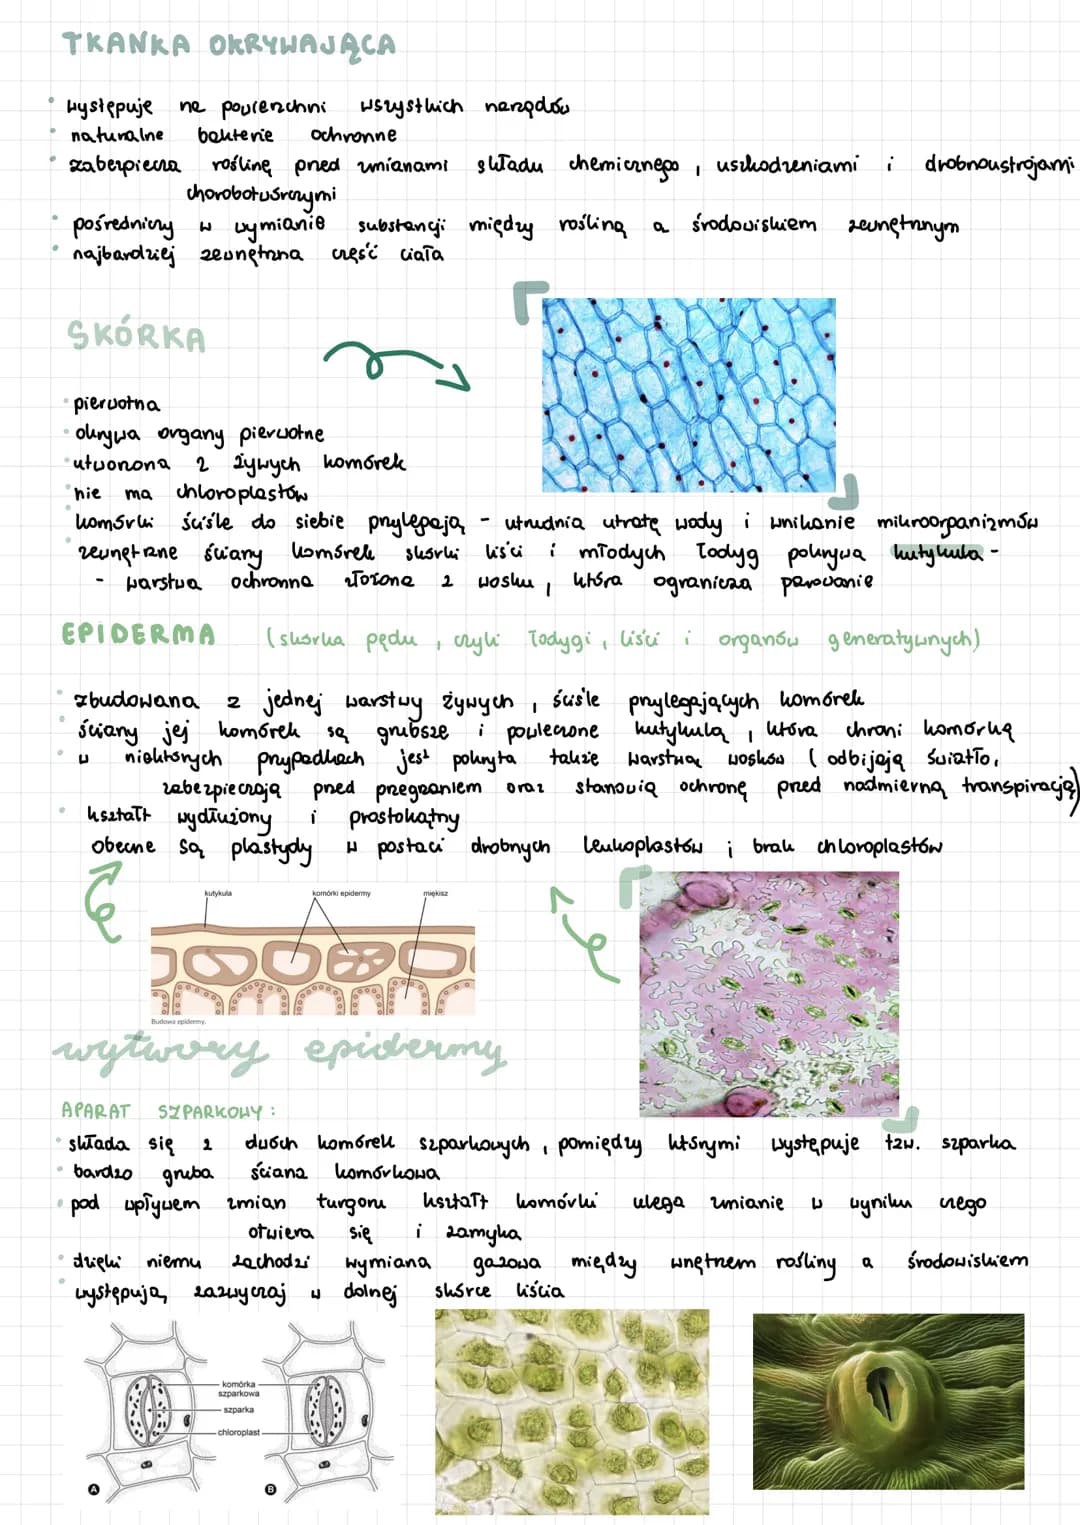 TKANKA OKRYWAJĄCA
• występuje na powierzchni wszystkich narządów
• naturalne bakterie ochronne
• zabezpiecza roślinę przed zmianami składu chemicznego, uszkodzeniami i drobnoustrojami
chorobotwórczymi
• pośredniczy w wymianie substancji między rośliną a środowiskiem zewnętrznym
• najbardziej zewnętrzna część ciała
SKÓRKA
• pierwotna
• okrywa organy pierwotne
• utworzona z żywych komórek
• nie ma chloroplastów
• komórki ściśle do siebie przylegają - utrudnia utratę wody i wnikanie mikroorganizmów
• zewnętrzne ściany komórek skórki liści i młodych łodyg pokrywa kutykula -
- warstwa ochronna złożona z wosku, która ogranicza parowanie
EPIDERMA (skórka pędu, czyli łodygi, liści i organów generatywnych)
• zbudowana z jednej warstwy żywych, ściśle przylegających komórek
• ściany jej komórek są grubsze i powleczone kutykulą, która chroni komórkę
• w niektórych przypadkach jest pokryta także warstwą wosków (odbijają światło,
zabezpieczają przed przegrzaniem oraz stanowią ochronę przed nadmierną transpiracją)
• kształt wydłużony i prostokątny
obecne są plastydy w postaci drobnych leukoplastów i brak chloroplastów
kutykula komórki epidermy miękisz
Budowa epidermy.
wytwory epidermy
APARAT SZPARKOWY:
• składa się z dwóch komórek szparkowych, pomiędzy którymi występuje tzw. szparka
• bardzo gruba ściana komórkowa
• pod wpływem zmian turgoru kształt komórki ulega zmianie w wyniku czego
otwiera się i zamyka
• dzięki niemu zachodzi wymiana gazowa między wnętrzem rośliny a środowiskiem
• występują zazwyczaj w dolnej skórce liścia
komórka
szparkowa
szparka
chloroplast
A B